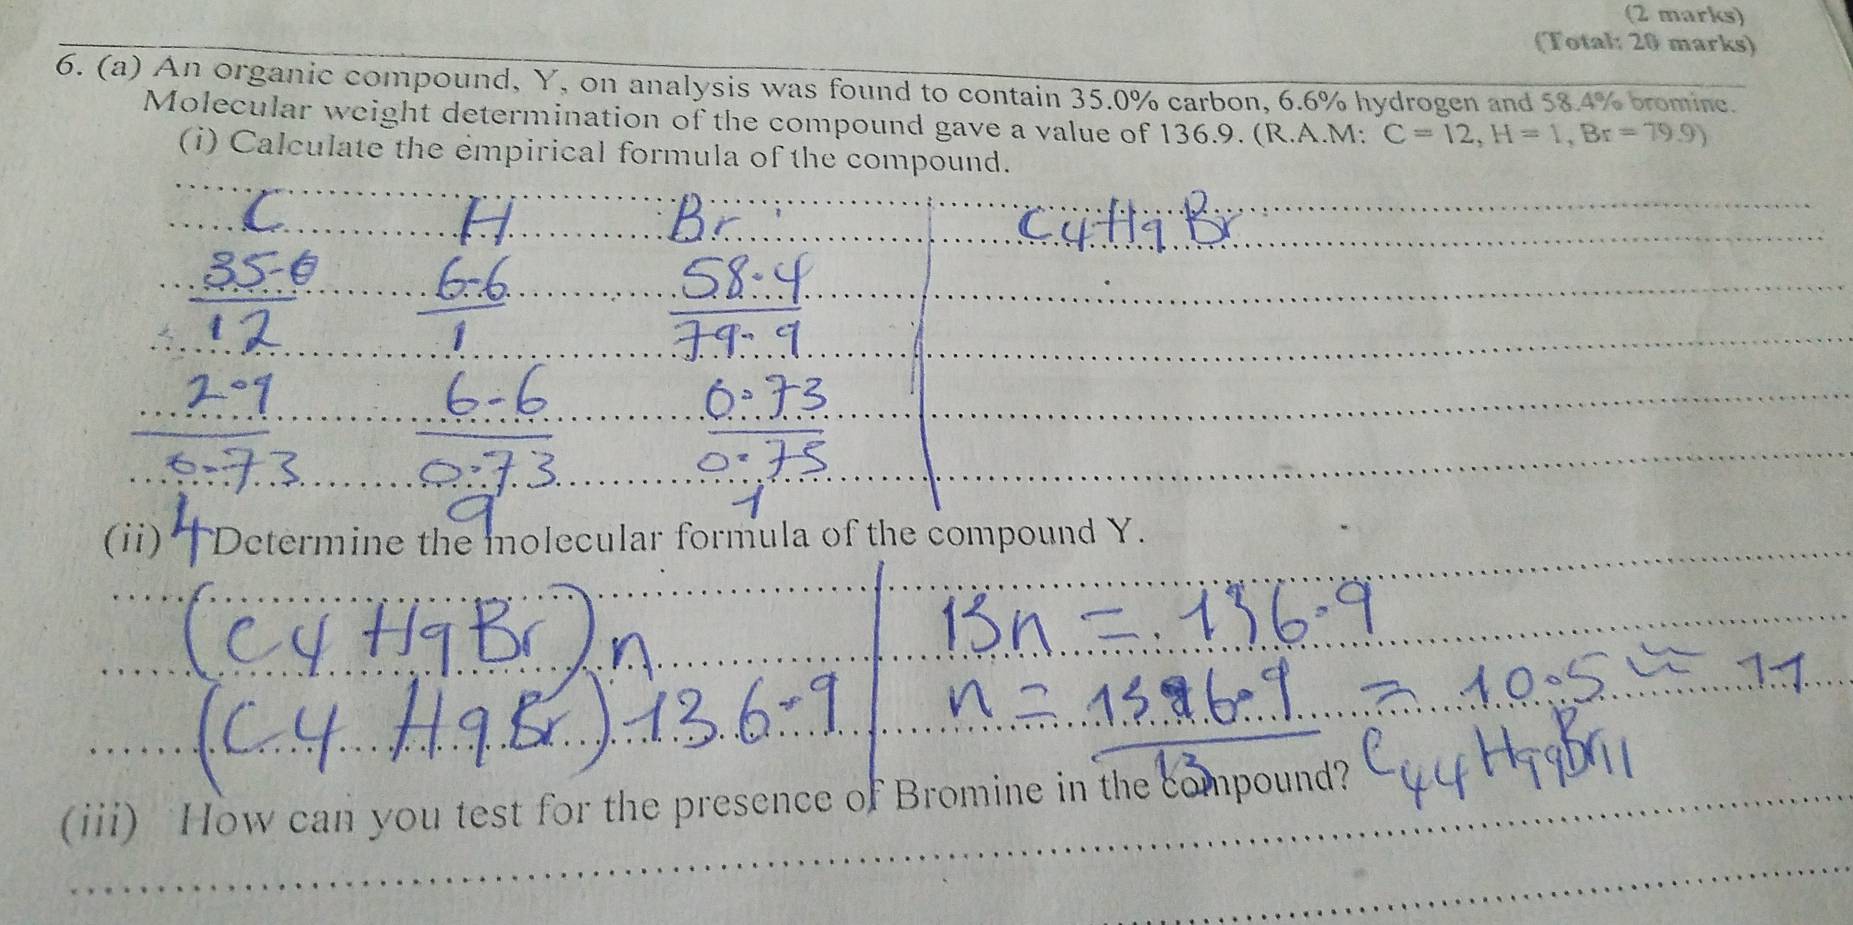 (2 marks)
(Total: 20 marks)
6. (a) An organic compound, Y, on analysis was found to contain 35.0% carbon, 6.6% hydrogen and 58.4% bromine.
Molecular weight determination of the compound gave a value of 136.9. (R.A.M: C = 12, H = 1, Br = 79.9)
(i) Calculate the empirical formula of the compound.
C H Br C4H9Br
35-0 6-6 58.4
12 1 79.9
2.9 6-6 0.73
0.73 0.73 0.73
4 9 1
(ii) Determine the molecular formula of the compound Y.
(C4H9Br)n 13n = 136.9
(C4H9Br)136.9 n = 136.9 = 10.5 ≈ 11
13
C44H99Br11
(iii) How can you test for the presence of Bromine in the compound?